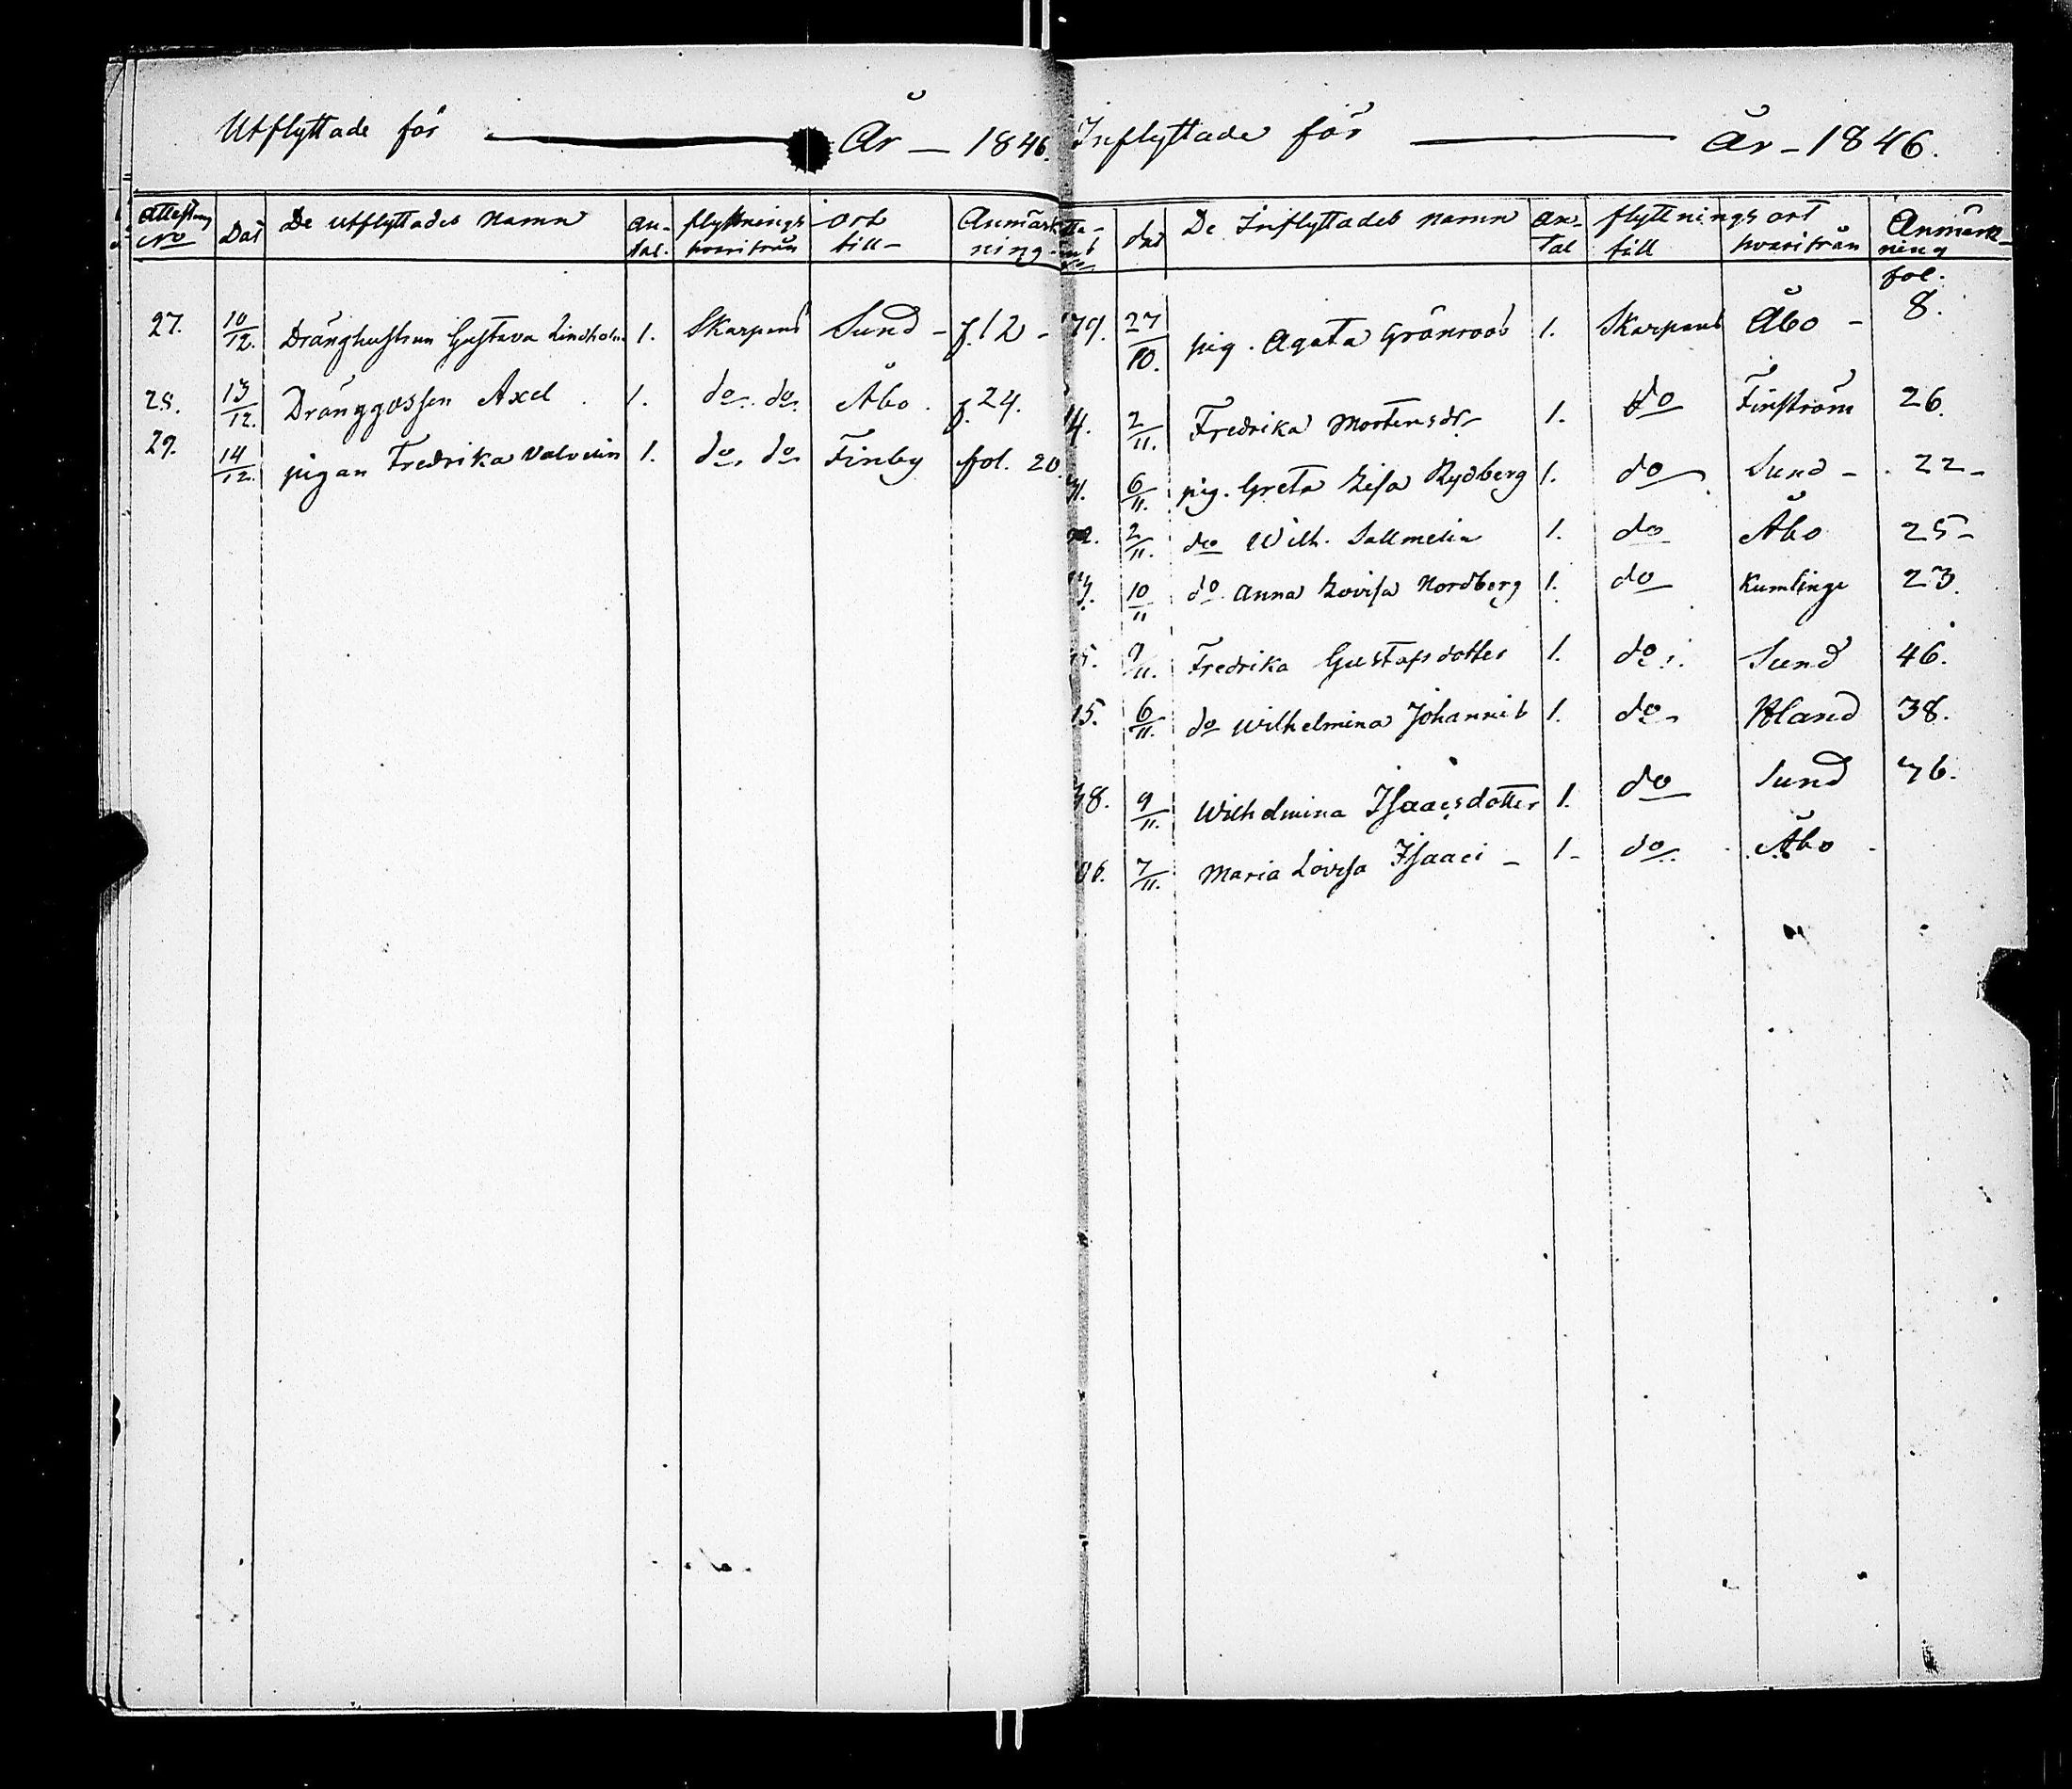 Utflyttade för År - 1846.
Attestens No Dat De utflyttades Namn An-tal. flyttnings hvarifrån ort till- Anmärkning.
27. 10/12. Dränghustrun Gustava Lindholm 1. Skarpans Sund - f. 12 -
28. 13/12. Dränggossen Axel 1. do do Åbo. f. 24.
29. 14/12. pigan Fredrika 1. do do Finby fol. 20.
Inflyttade för År - 1846.
dat De Inflyttades namn An-tal flyttnings ort till hvarifrån Anmärk-ning
fol.
79. 27/10. pig. Agata Grönroos 1. Skarpans Åbo - 8.
4. 2/11. Fredrika Mortensdr 1. do Finström 26.
6/11. pig. Greta Lisa Rydberg 1. do Sund - 22 -
2/11. do Wilh. Sallmelin 1. do Åbo 25 -
10/11 do Anna Lovisa Nordberg 1. do Kumlinge 23.
Fredrika Gustafsdotter 1. do Sund 46.
15. 6/11. do Wilhelmina Johannis 1. do 38.
38. 9/11. Wilhelmina Isaacsdotter 1. do Sund 76.
06. 7/11. Maria Lovisa Isaaci - 1 - do Åbo